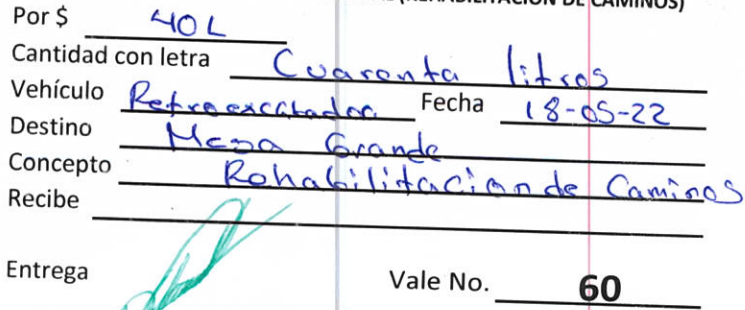 (REHABILITACIÓN DE CAMINOS)
Por $ 40 L
Cantidad con letra Cuaronta litros
Vehículo Retroexcabador Fecha 18-05-22
Destino Mesa Grande
Concepto Rohabilitacion de Caminos
Recibe
Entrega Vale No. 60